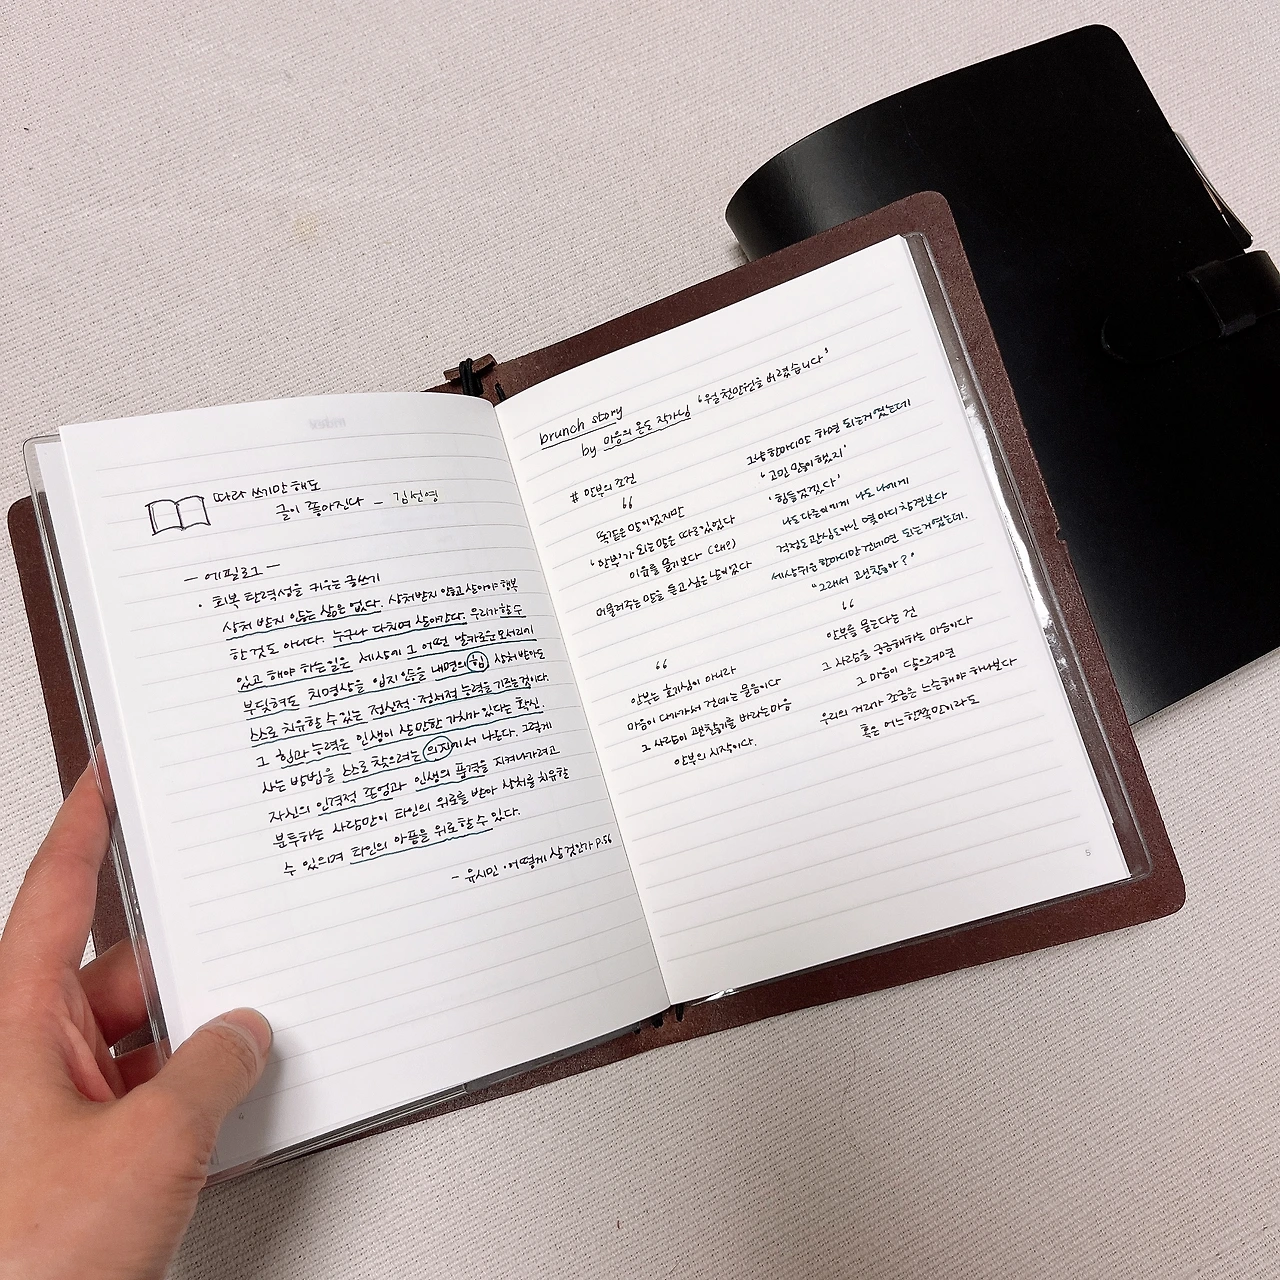 따라 쓰기만 해도
글이 좋아진다 - 김선영
- 에필로그 -
· 회복 탄력성을 키우는 글쓰기
상처 받지 않는 삶은 없다. 상처받지 않고 살아야 행복
한 것도 아니다. 누구나 다치며 살아간다. 우리가 할 수
있고 해야 하는 일은 세상의 그 어떤 날카로운 모서리에
부딪혀도 치명상을 입지 않을 내면의 힘 상처 받아도
스스로 치유할 수 있는 정신적·정서적 능력을 기르는 것이다.
그 힘과 능력은 인생이 살만한 가치가 있다는 확신,
사는 방법을 스스로 찾으려는 의지에서 나온다. 그렇게
자신의 인격적 존엄과 인생의 품격을 지켜나가려고
분투하는 사람만이 타인의 위로를 받아 상처를 치유할
수 있으며 타인의 아픔을 위로할 수 있다.
- 유시민 · 어떻게 살 것인가 P.56
brunch story
by 마음의 온도 작가님 '월 천만원을 버렸습니다'
# 안부의 조건
“
똑같은 말이었지만
'안부'가 되는 말은 따로 있었다
이유를 묻기보다 (왜?)
머물러주는 말을 듣고 싶은 날이 있다
“
안부는 호기심이 아니라
마음이 다가가서 건네는 물음이다
그 사람이 괜찮기를 바라는 마음
안부의 시작이다.
그냥 한마디만 하면 되는거였는데
'고민 많이 했지'
'힘들었겠다'
나도 다른이에게 나도 나에게
걱정도 관심도 아닌 몇 마디 참견보다
세상 쉬운 한마디만 건네면 되는거였는데.
“그래서 괜찮아?”
“
안부를 묻는다는 건
그 사람을 궁금해하는 마음이다
그 마음이 닿으려면
우리의 거리가 조금은 느슨해야 하나보다
혹은 어느 한쪽만이라도
5